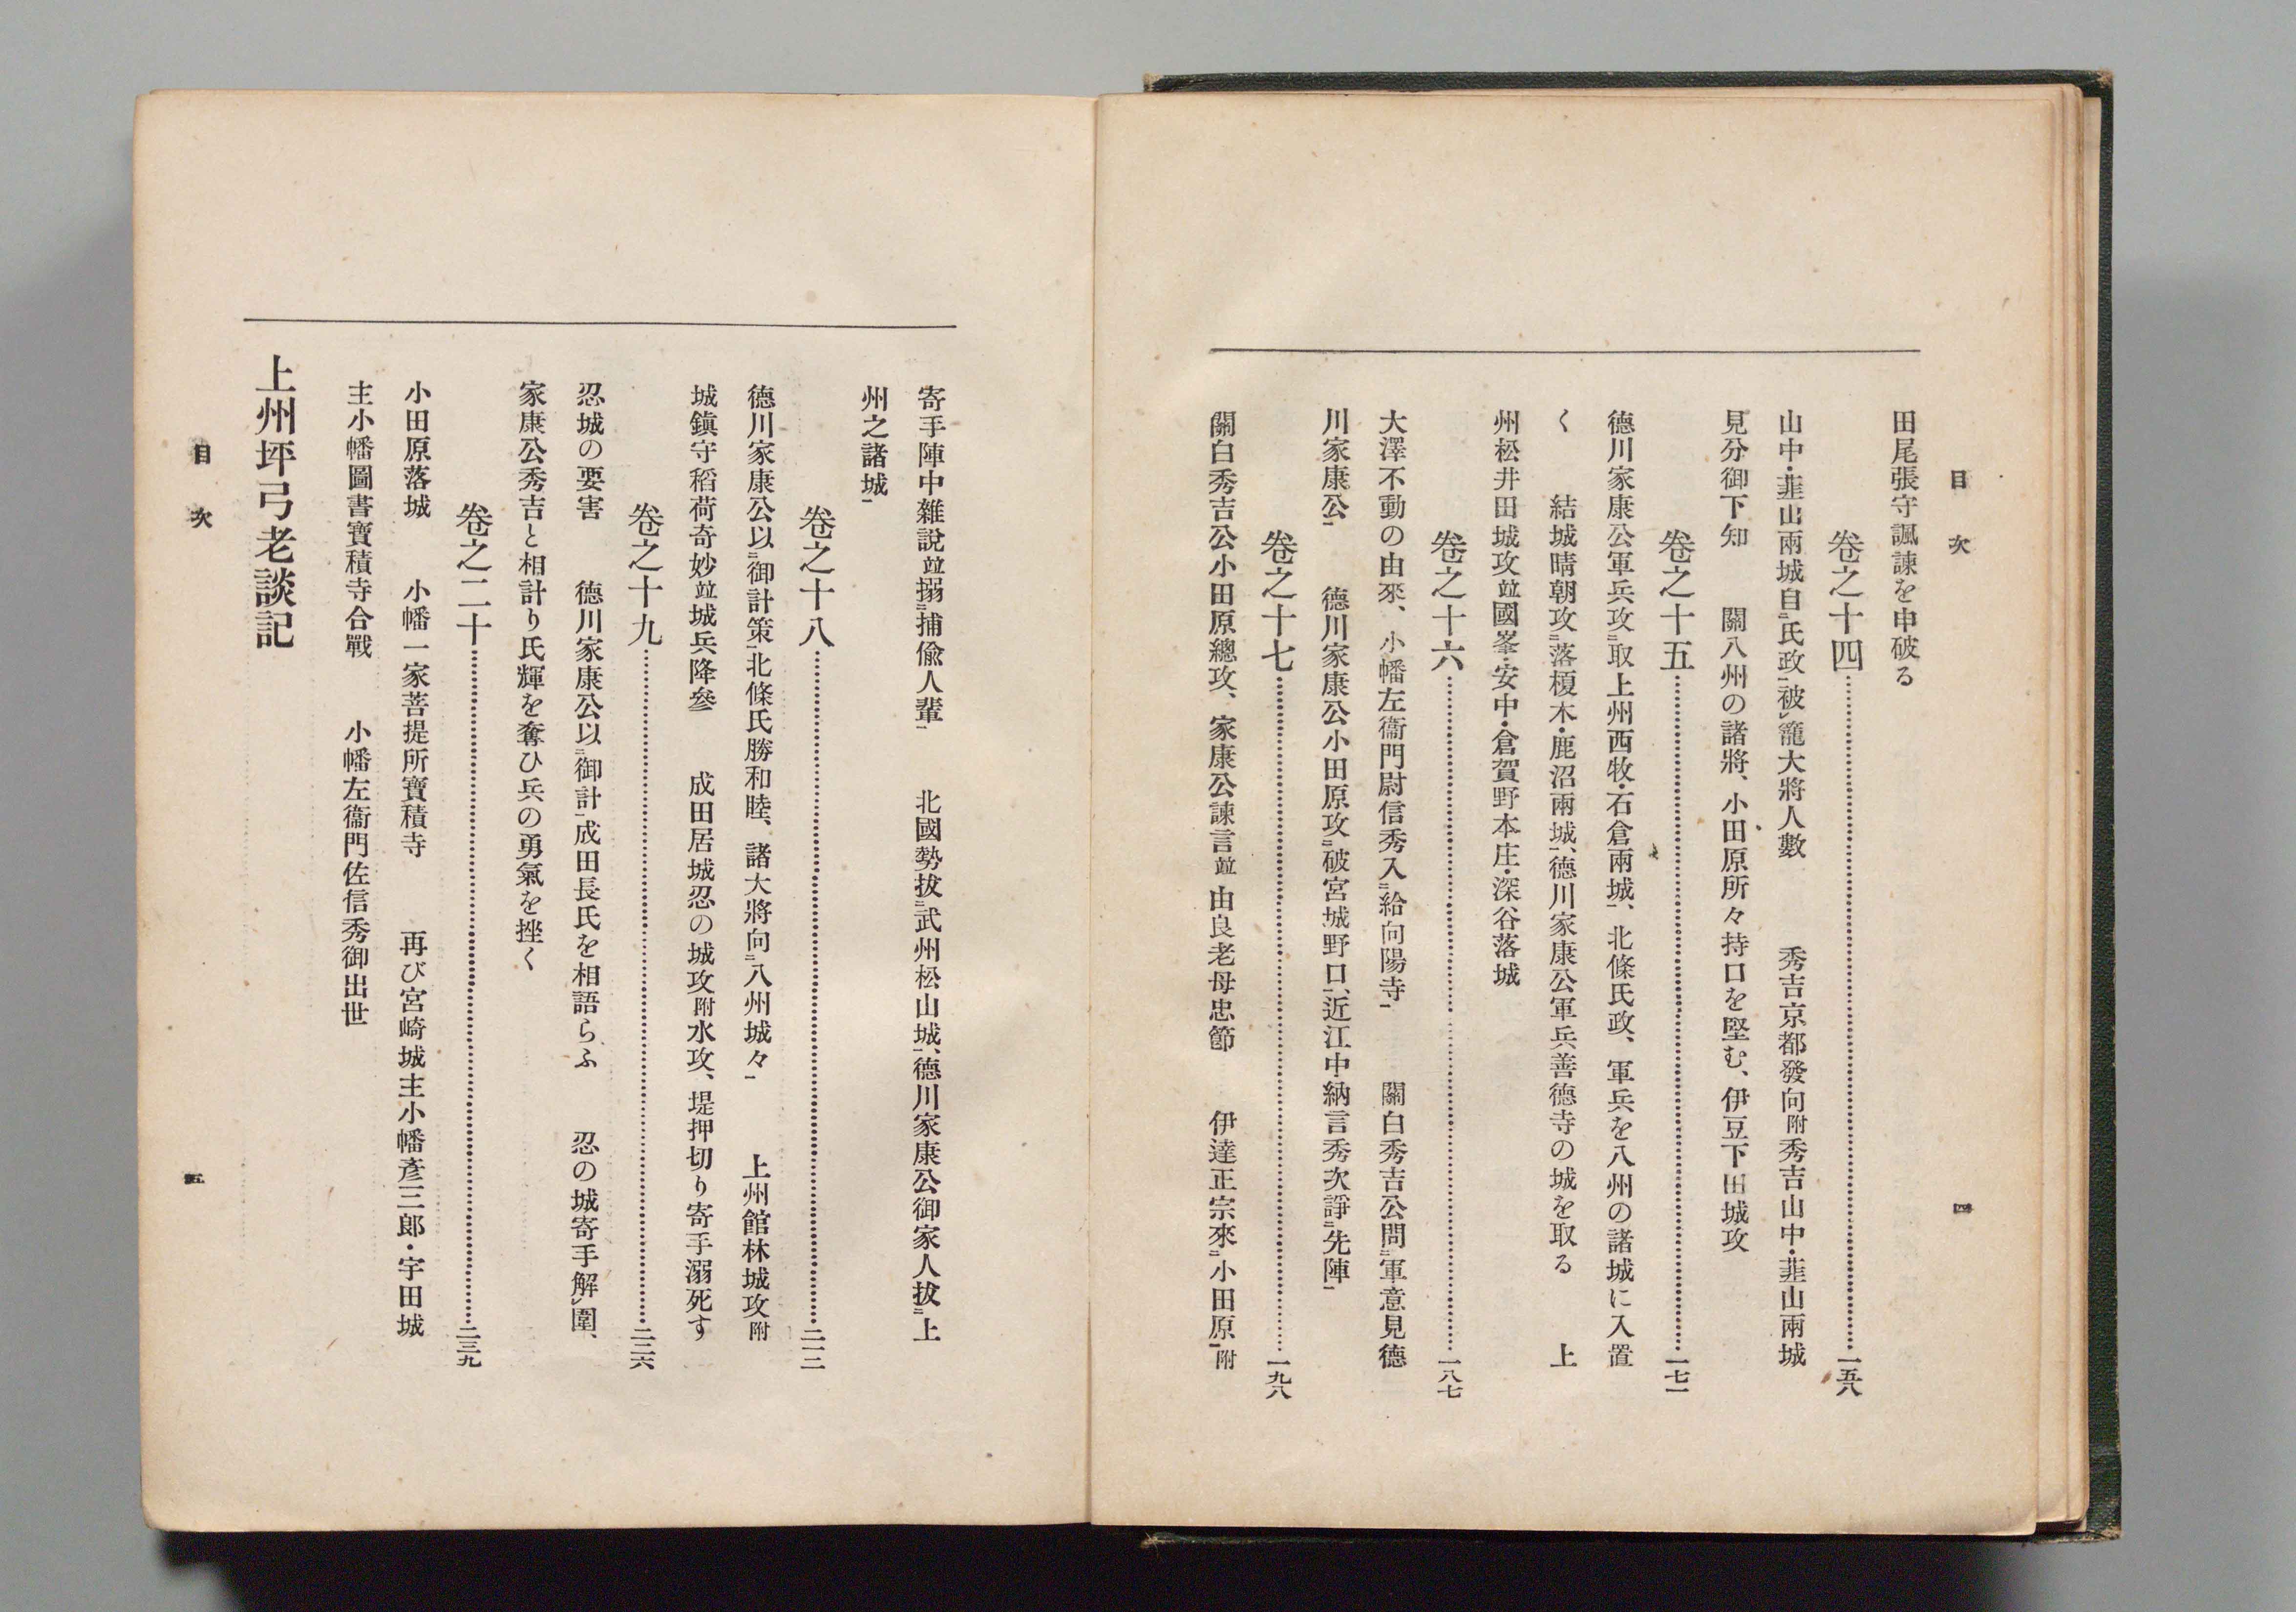 目次
四
田尾張守諷諫を申破る
卷之十四……一五八
山中・韮山兩城自二氏政一被レ籠大將人數　秀吉京都發向附秀吉山中・韮山兩城
見分御下知　關八州の諸將、小田原所々持口を堅む、伊豆下田城攻
卷之十五……一七一
德川家康公軍兵攻二取上州西牧・石倉兩城一、北條氏政、軍兵を八州の諸城に入置
く　結城晴朝攻二落榎木・鹿沼兩城一、德川家康公軍兵善德寺の城を取る　上
州松井田城攻竝國峯・安中・倉賀野本庄・深谷落城
卷之十六……一八七
大澤不動の由來、小幡左衞門尉信秀入二給向陽寺一　關白秀吉公問二軍意見德
川家康公一　德川家康公小田原攻二破宮城野口一、近江中納言秀次諍二先陣一
卷之十七……一九八
關白秀吉公小田原總攻、家康公諫言竝由良老母忠節　伊達正宗來二小田原一附
寄手陣中雜說竝搦二捕偸人輩一　北國勢拔二武州松山城一、德川家康公御家人拔二上
州之諸城一
卷之十八……二一二
德川家康公以二御計策一北條氏勝和睦、諸大將向二八州城々一　上州館林城攻附
城鎭守稻荷奇妙竝城兵降參　成田居城忍の城攻附水攻、堤押切り寄手溺死す
卷之十九……二二六
忍城の要害　德川家康公以二御計一成田長氏を相語らふ　忍の城寄手解レ圍、
家康公秀吉と相計り氏輝を奪ひ兵の勇氣を挫く
卷之二十……二三九
小田原落城　小幡一家菩提所寶積寺　再び宮崎城主小幡彥三郎・宇田城
主小幡圖書寶積寺合戰　小幡左衞門佐信秀御出世
上州坪弓老談記
目次
五